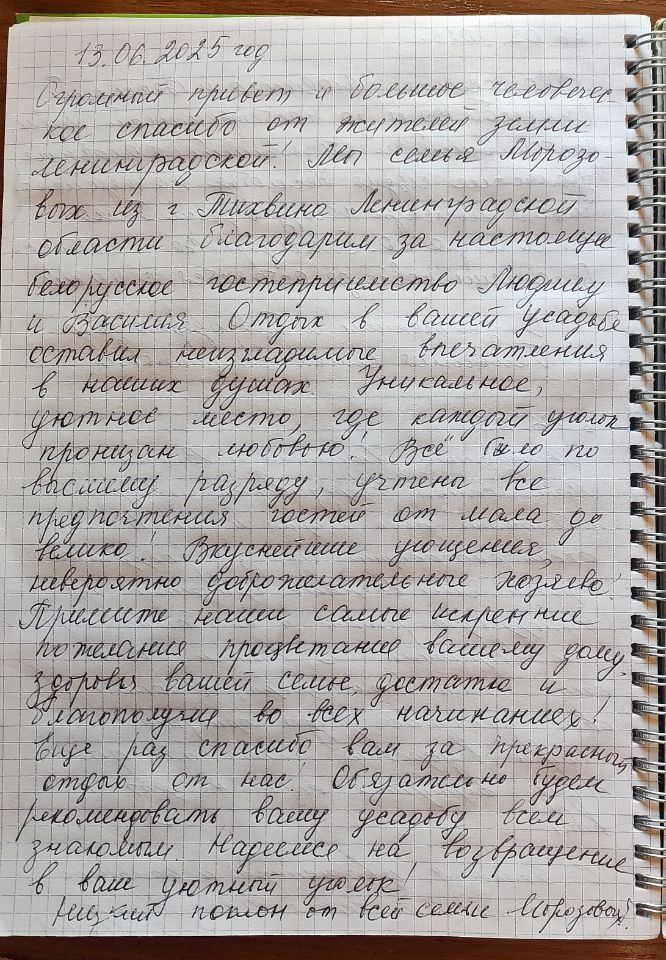 13.06.2025 год
Огромный привет и большое человечес-
кое спасибо от жителей земли
ленинградской! Мы семья Морозо-
вых из г Тихвина Ленинградской
области благодарим за настоящее
белорусское гостеприимство Людмилу
и Василия Отдых в вашей усадьбе
оставил неизгладимые впечатления
в наших душах. Уникальное,
уютное место, где каждый уголок
пронизан любовью! Всё было по
высшему разряду, учтены все
предпочтения гостей от мала до
велико! Вкуснейшие угощения,
невероятно доброжелательные хозяева!
Примите наши самые искренние
пожелания процветания вашему дому,
здоровья вашей семье, достатка и
благополучия во всех начинаниях!
Еще раз спасибо вам за прекрасный
отдых от нас! Обязательно будем
рекомендовать вашу усадьбу всем
знакомым. Надеемся на возвращение
в ваш уютный уголок!
Низкий поклон от всей семьи Морозовых!